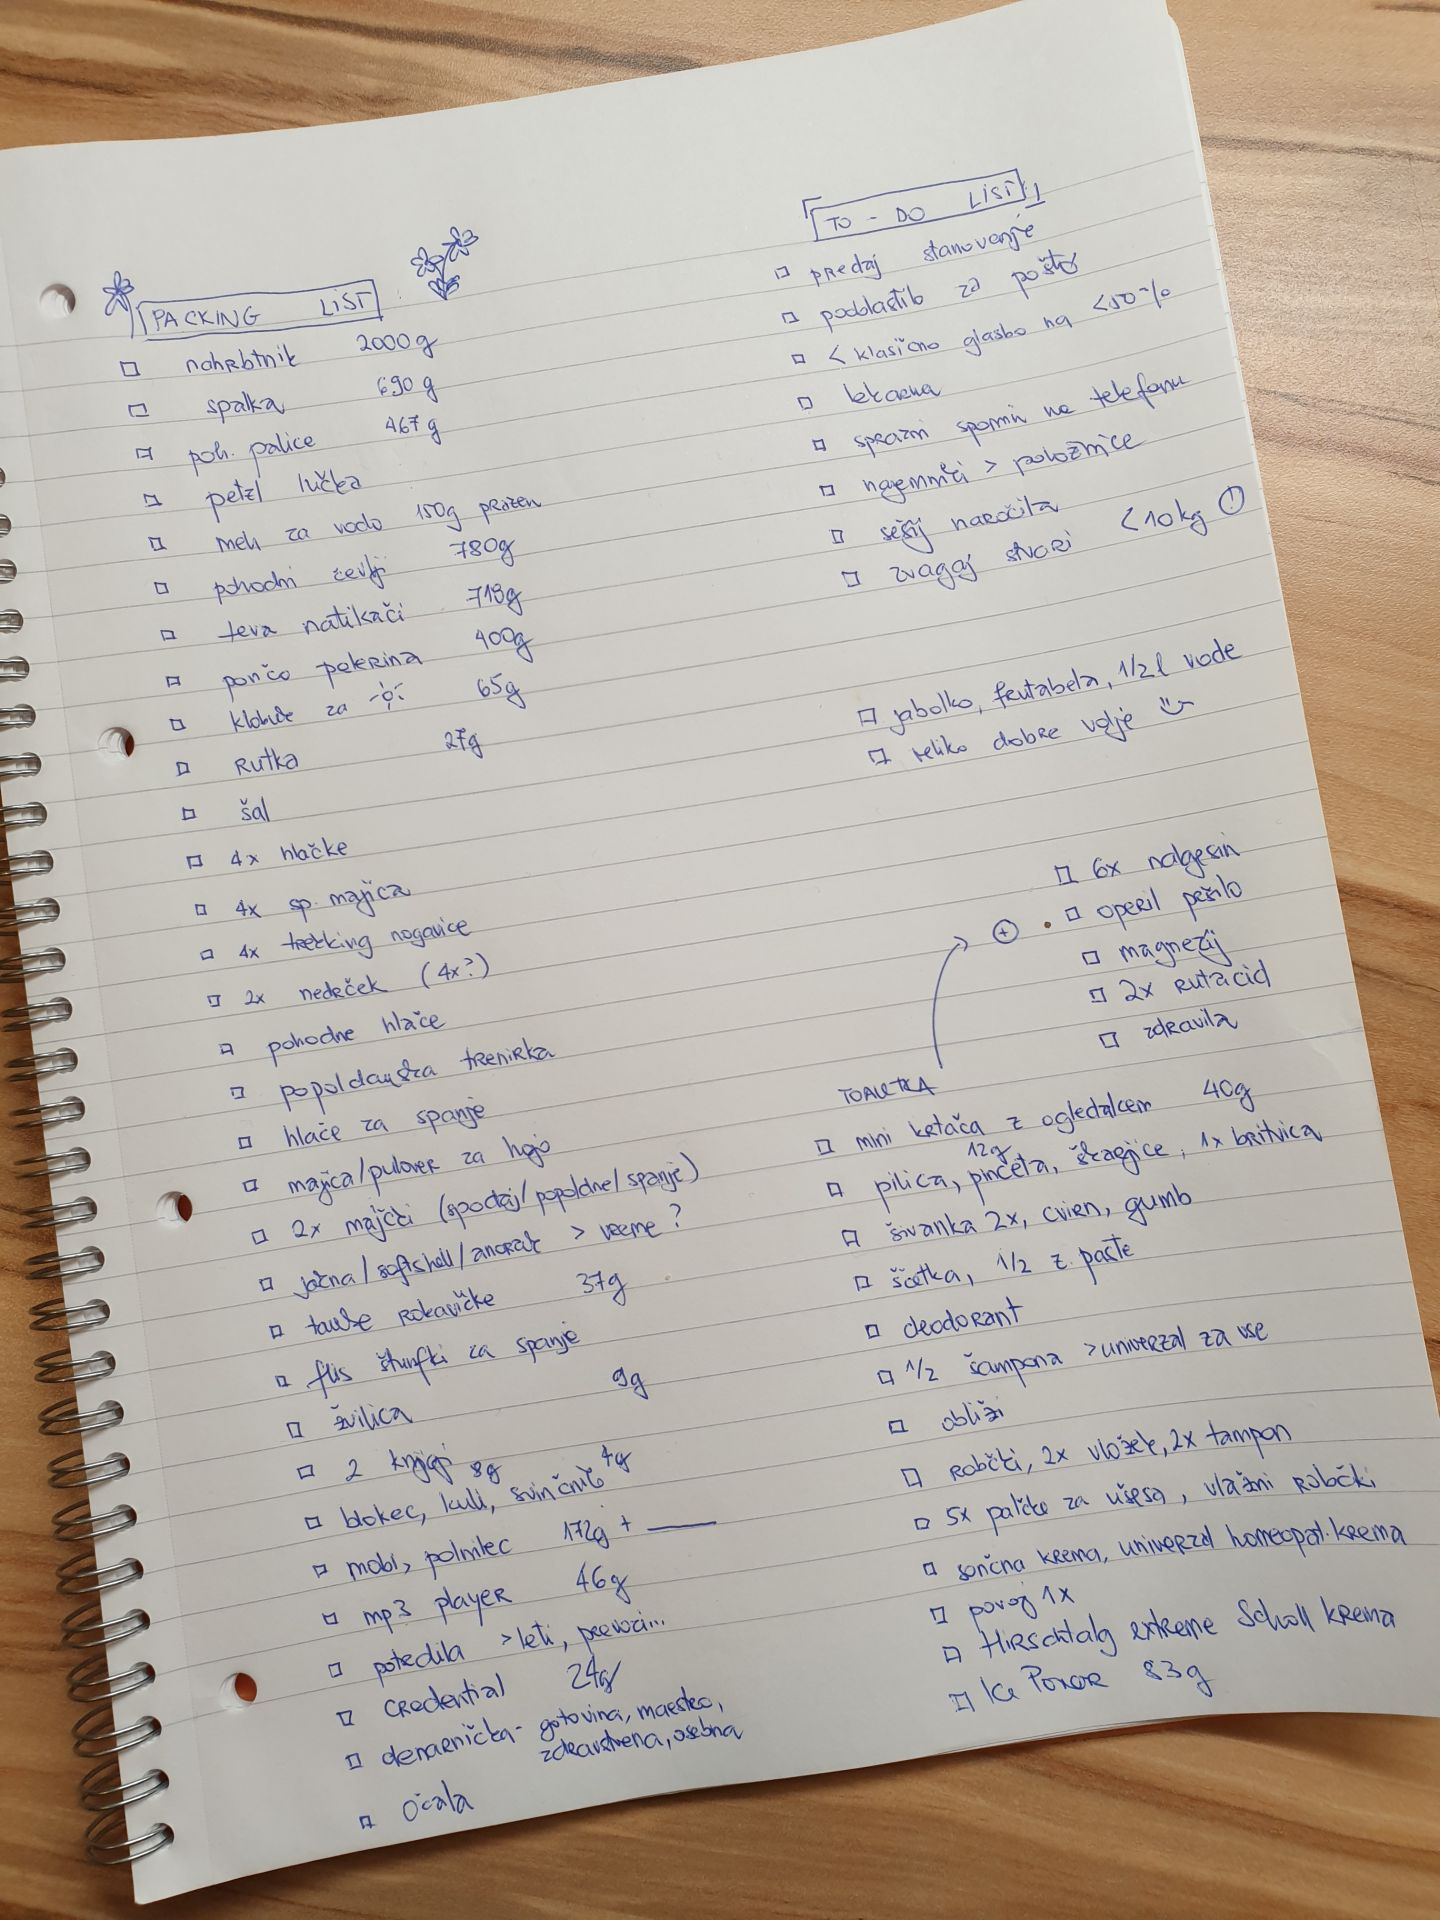 PACKING LIST
□ nahrbtnik 2000g
□ spalka 690g
□ poh. palice 467g
□ petzl lučka
□ meh za vodo 150g prazen
□ pohodni čevlji 780g
□ teva natikači 718g
□ pončo pelerina 400g
□ klobuk za 65g
□ rutka 27g
□ šal
□ 4x hlačke
□ 4x sp. majica
□ 4x trekking nogavice
□ 2x nedrček (4x?)
□ pohodne hlače
□ popoldanska trenirka
□ hlače za spanje
□ majica/pulover za hojo
□ 2x majčki (spodaj/popoldne/spanje)
□ jakna/softshell/anorak > vreme?
□ tanke rokavičke 37g
□ flis štunfki za spanje
□ žvilica 9g
□ 2 knjigi
□ blokec, kuli, svinčnik 8g 4g
□ mobi, polnilec 172g +
□ mp3 player 46g
□ potrdila > leti, prevozi...
□ credential 24g
□ denarnička - gotovina, maestro,
zdravstvena, osebna
□ očala
TO - DO LIST!
□ predaj stanovanje
□ pooblastilo za pošto
□ < klasično glasbo na <50%
□ lekarna
□ sprazni spomin na telefonu
□ najemniki > položnice
□ sešij naročila
□ zvagaj stvari <10kg !
□ jabolko, frutabela, 1/2 l vode
□ veliko dobre volje
□ 6x nalgesin
+ □ operil pršilo
□ magnezij
□ 2x rutacid
□ zdravila
TOALETKA
□ mini krtača z ogledalcem 40g
□ pilica, pinceta, škarjice, 1x britvica
12g
□ šivanka 2x, cvirn, gumb
□ ščetka, 1/2 z. paste
□ deodorant
□ 1/2 šampona > univerzal za vse
□ obliži
□ robčki, 2x vložek, 2x tampon
□ 5x palčke za ušesa, vlažni robčki
□ sončna krema, univerzal homeopat. krema
□ povoj 1x
□ Hirschtalg extreme Scholl krema
□ Ice Power 83g